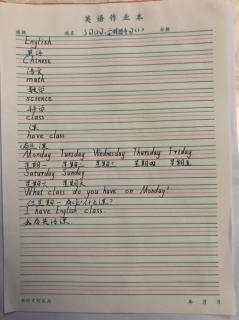 英语作业本
班级 姓名 分数
English
英语
Chinese
语文
math
数学
science
科学
class
课
have class
上课
Monday Tuesday Wednesday Thursday Friday
星期一 星期二 星期三 星期四 星期五
Saturday Sunday
星期六 星期天
What class do you have on Monday?
你星期一有什么课?
I have English class.
我有英语课.
年 月 日